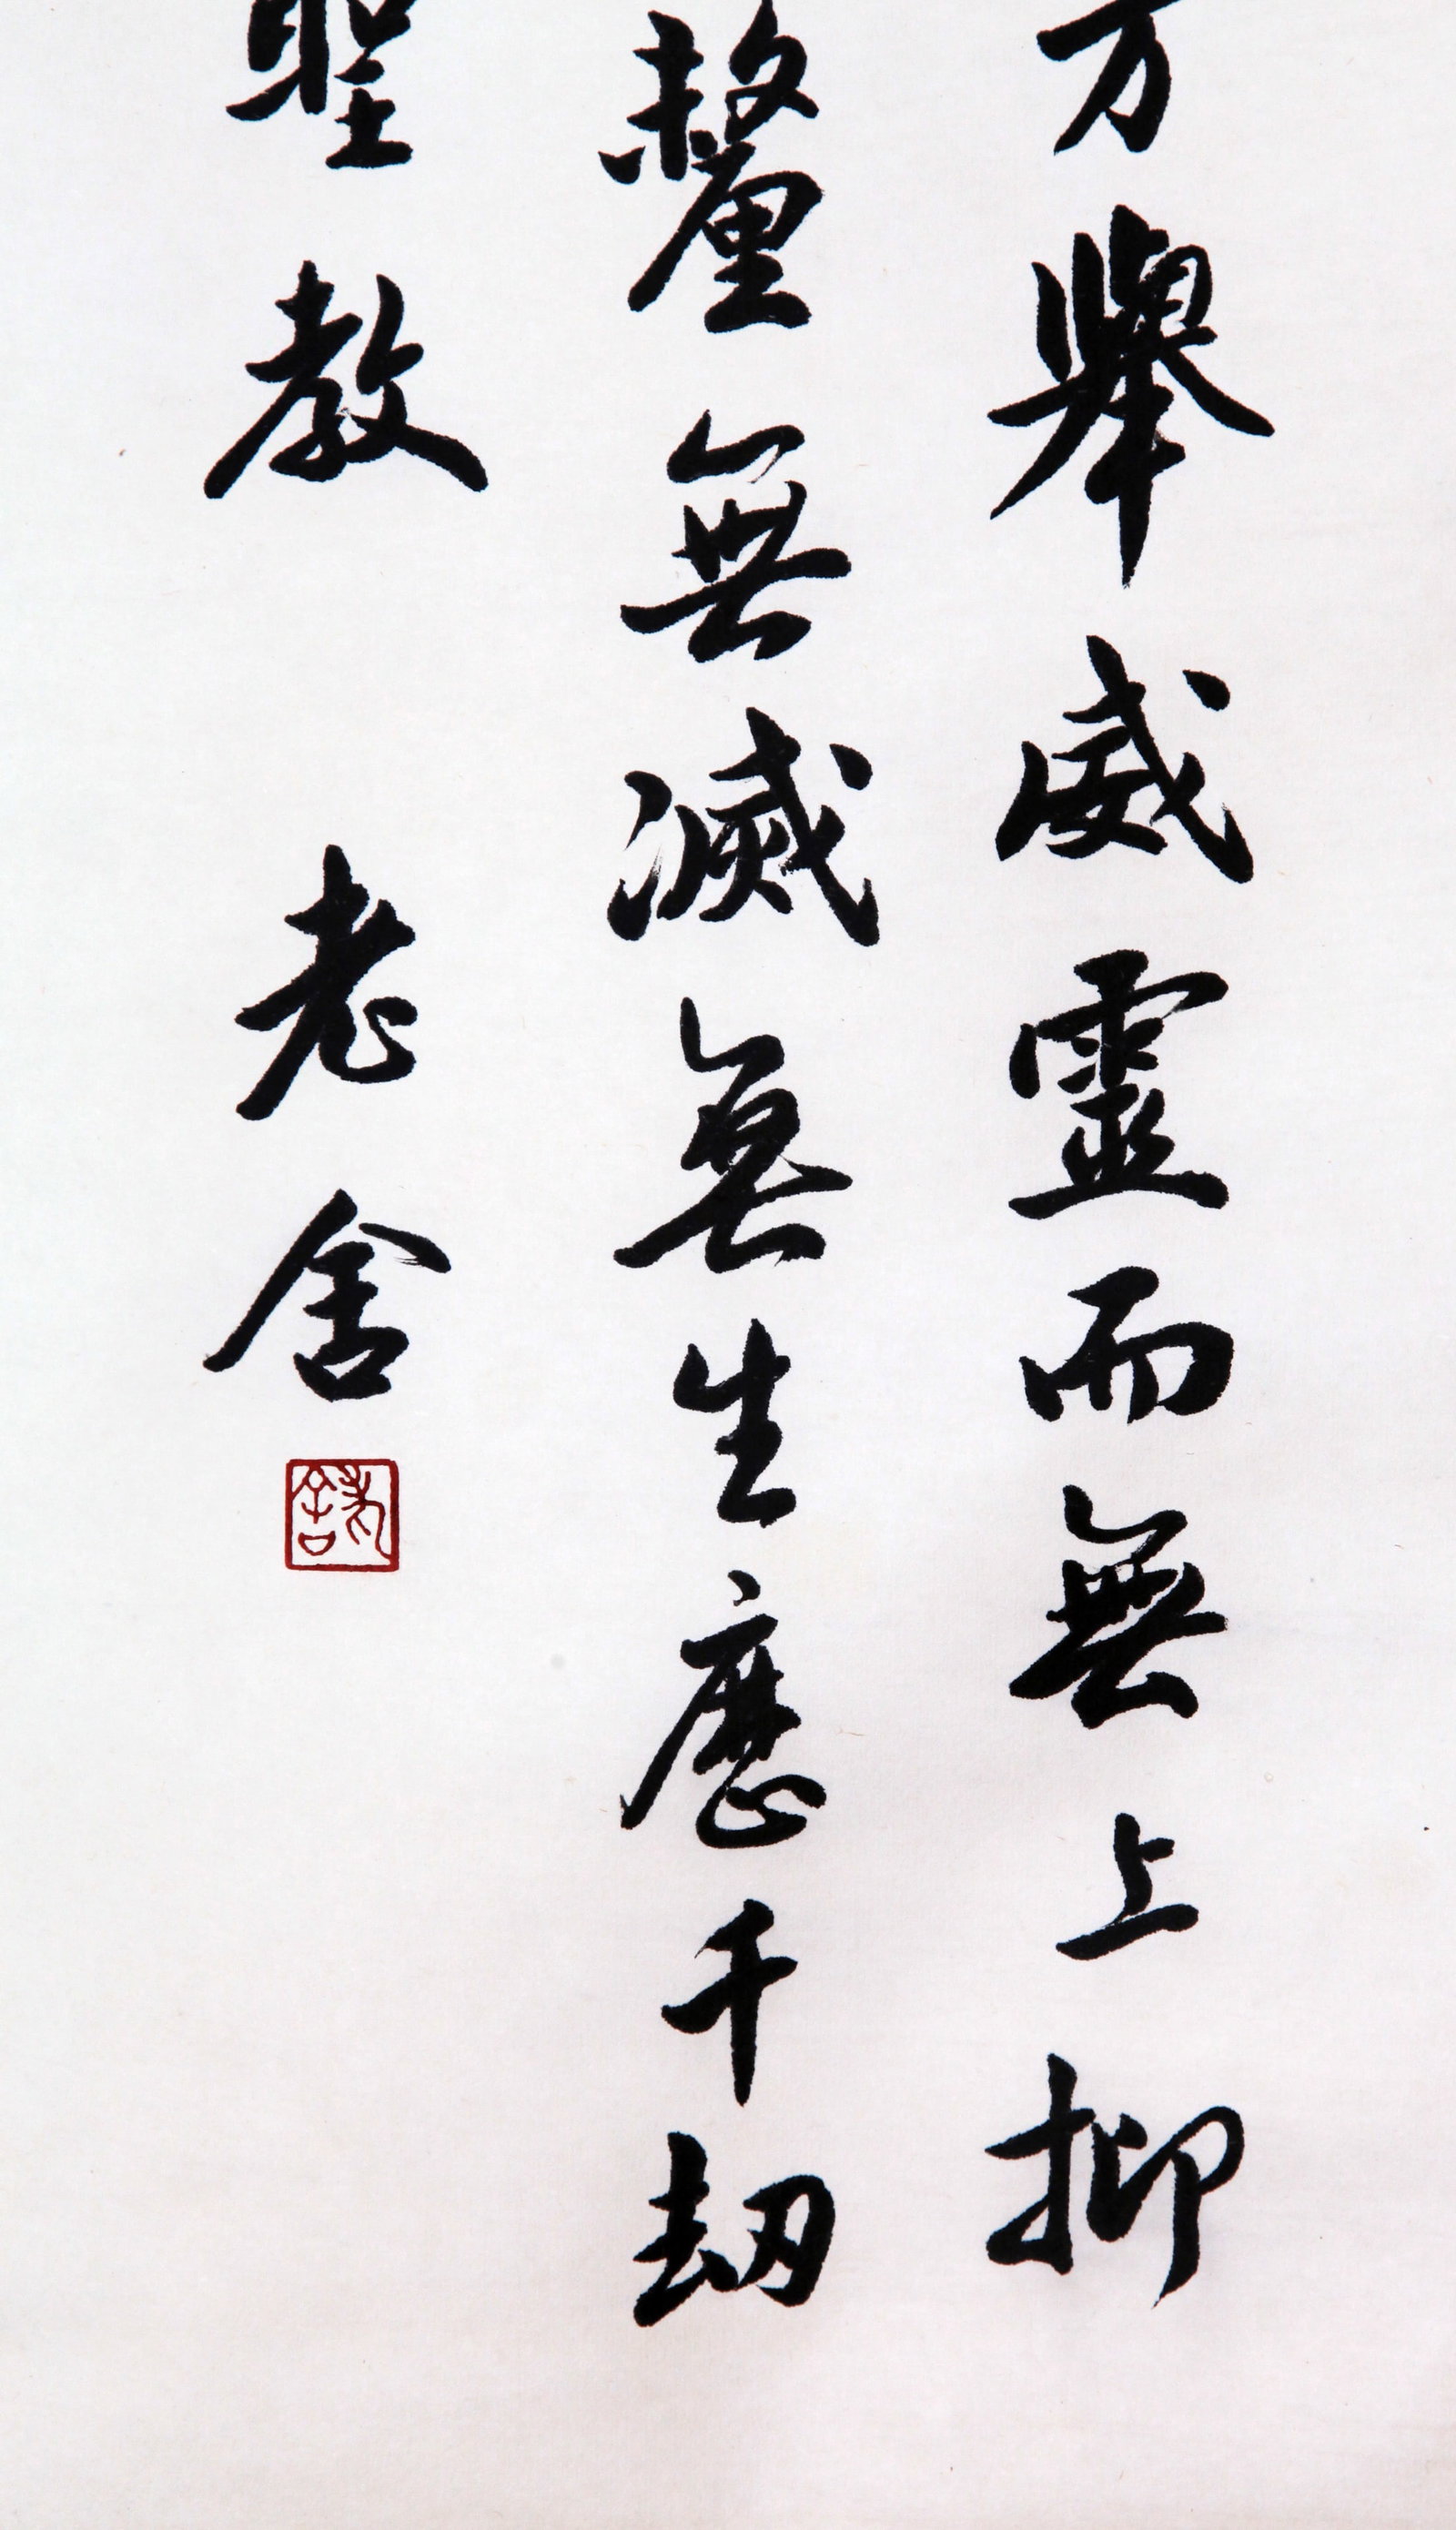 方舉威靈而無上抑
釐無滅無生歷千劫
聖教 老舍
老舍